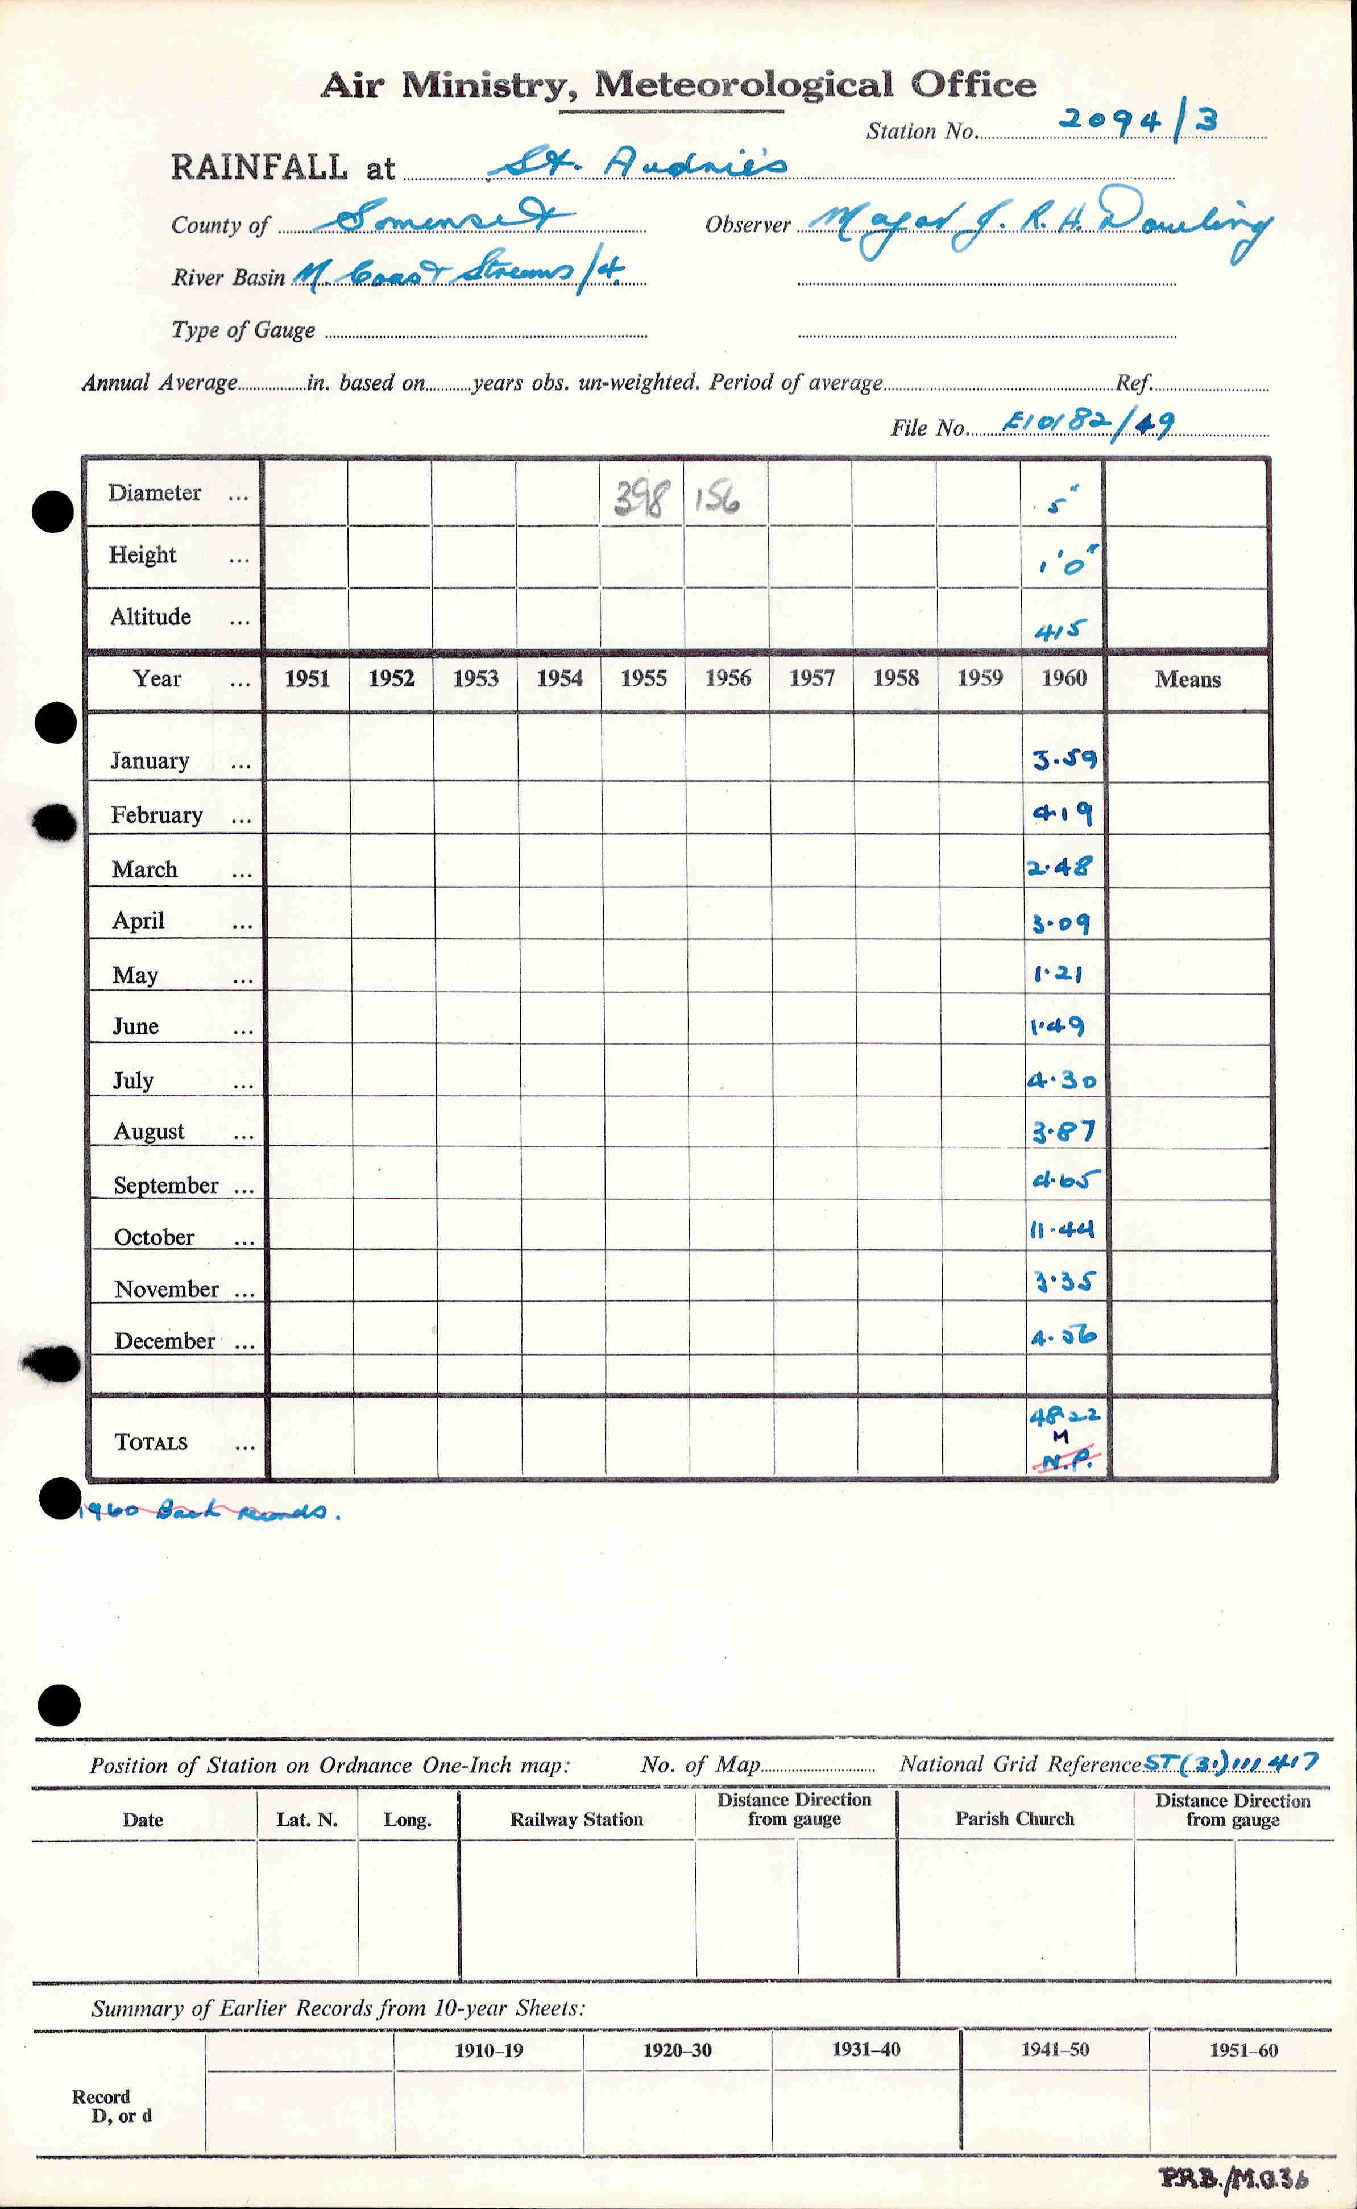 Air Ministry, Meteorological Office
Station No. 2094/3
RAINFALL at St. Audrie's
County of Somerset Observer Major J. R. H. Dowling
River Basin M. Coast Streams/4.
Type of Gauge
Annual Average in. based on years obs. un-weighted. Period of average Ref.
File No. E10182/49
Diameter ... 398 156 5"
Height ... 1'0"
Altitude ... 415
Year ... 1951 1952 1953 1954 1955 1956 1957 1958 1959 1960 Means
January ... 3.59
February ... 4.19
March ... 2.48
April ... 3.09
May ... 1.21
June ... 1.49
July ... 4.30
August ... 3.87
September ... 4.65
October ... 11.44
November ... 3.35
December ... 4.56
48.22
TOTALS ... M
N.P.
1960 Back records.
Position of Station on Ordnance One-Inch map: No. of Map National Grid Reference ST(31) 111 417
Date Lat. N. Long. Railway Station Distance Direction from gauge Parish Church Distance Direction from gauge
Summary of Earlier Records from 10-year Sheets:
1910–19 1920–30 1931–40 1941–50 1951–60
Record
D, or d
P.R.B./M.O.36